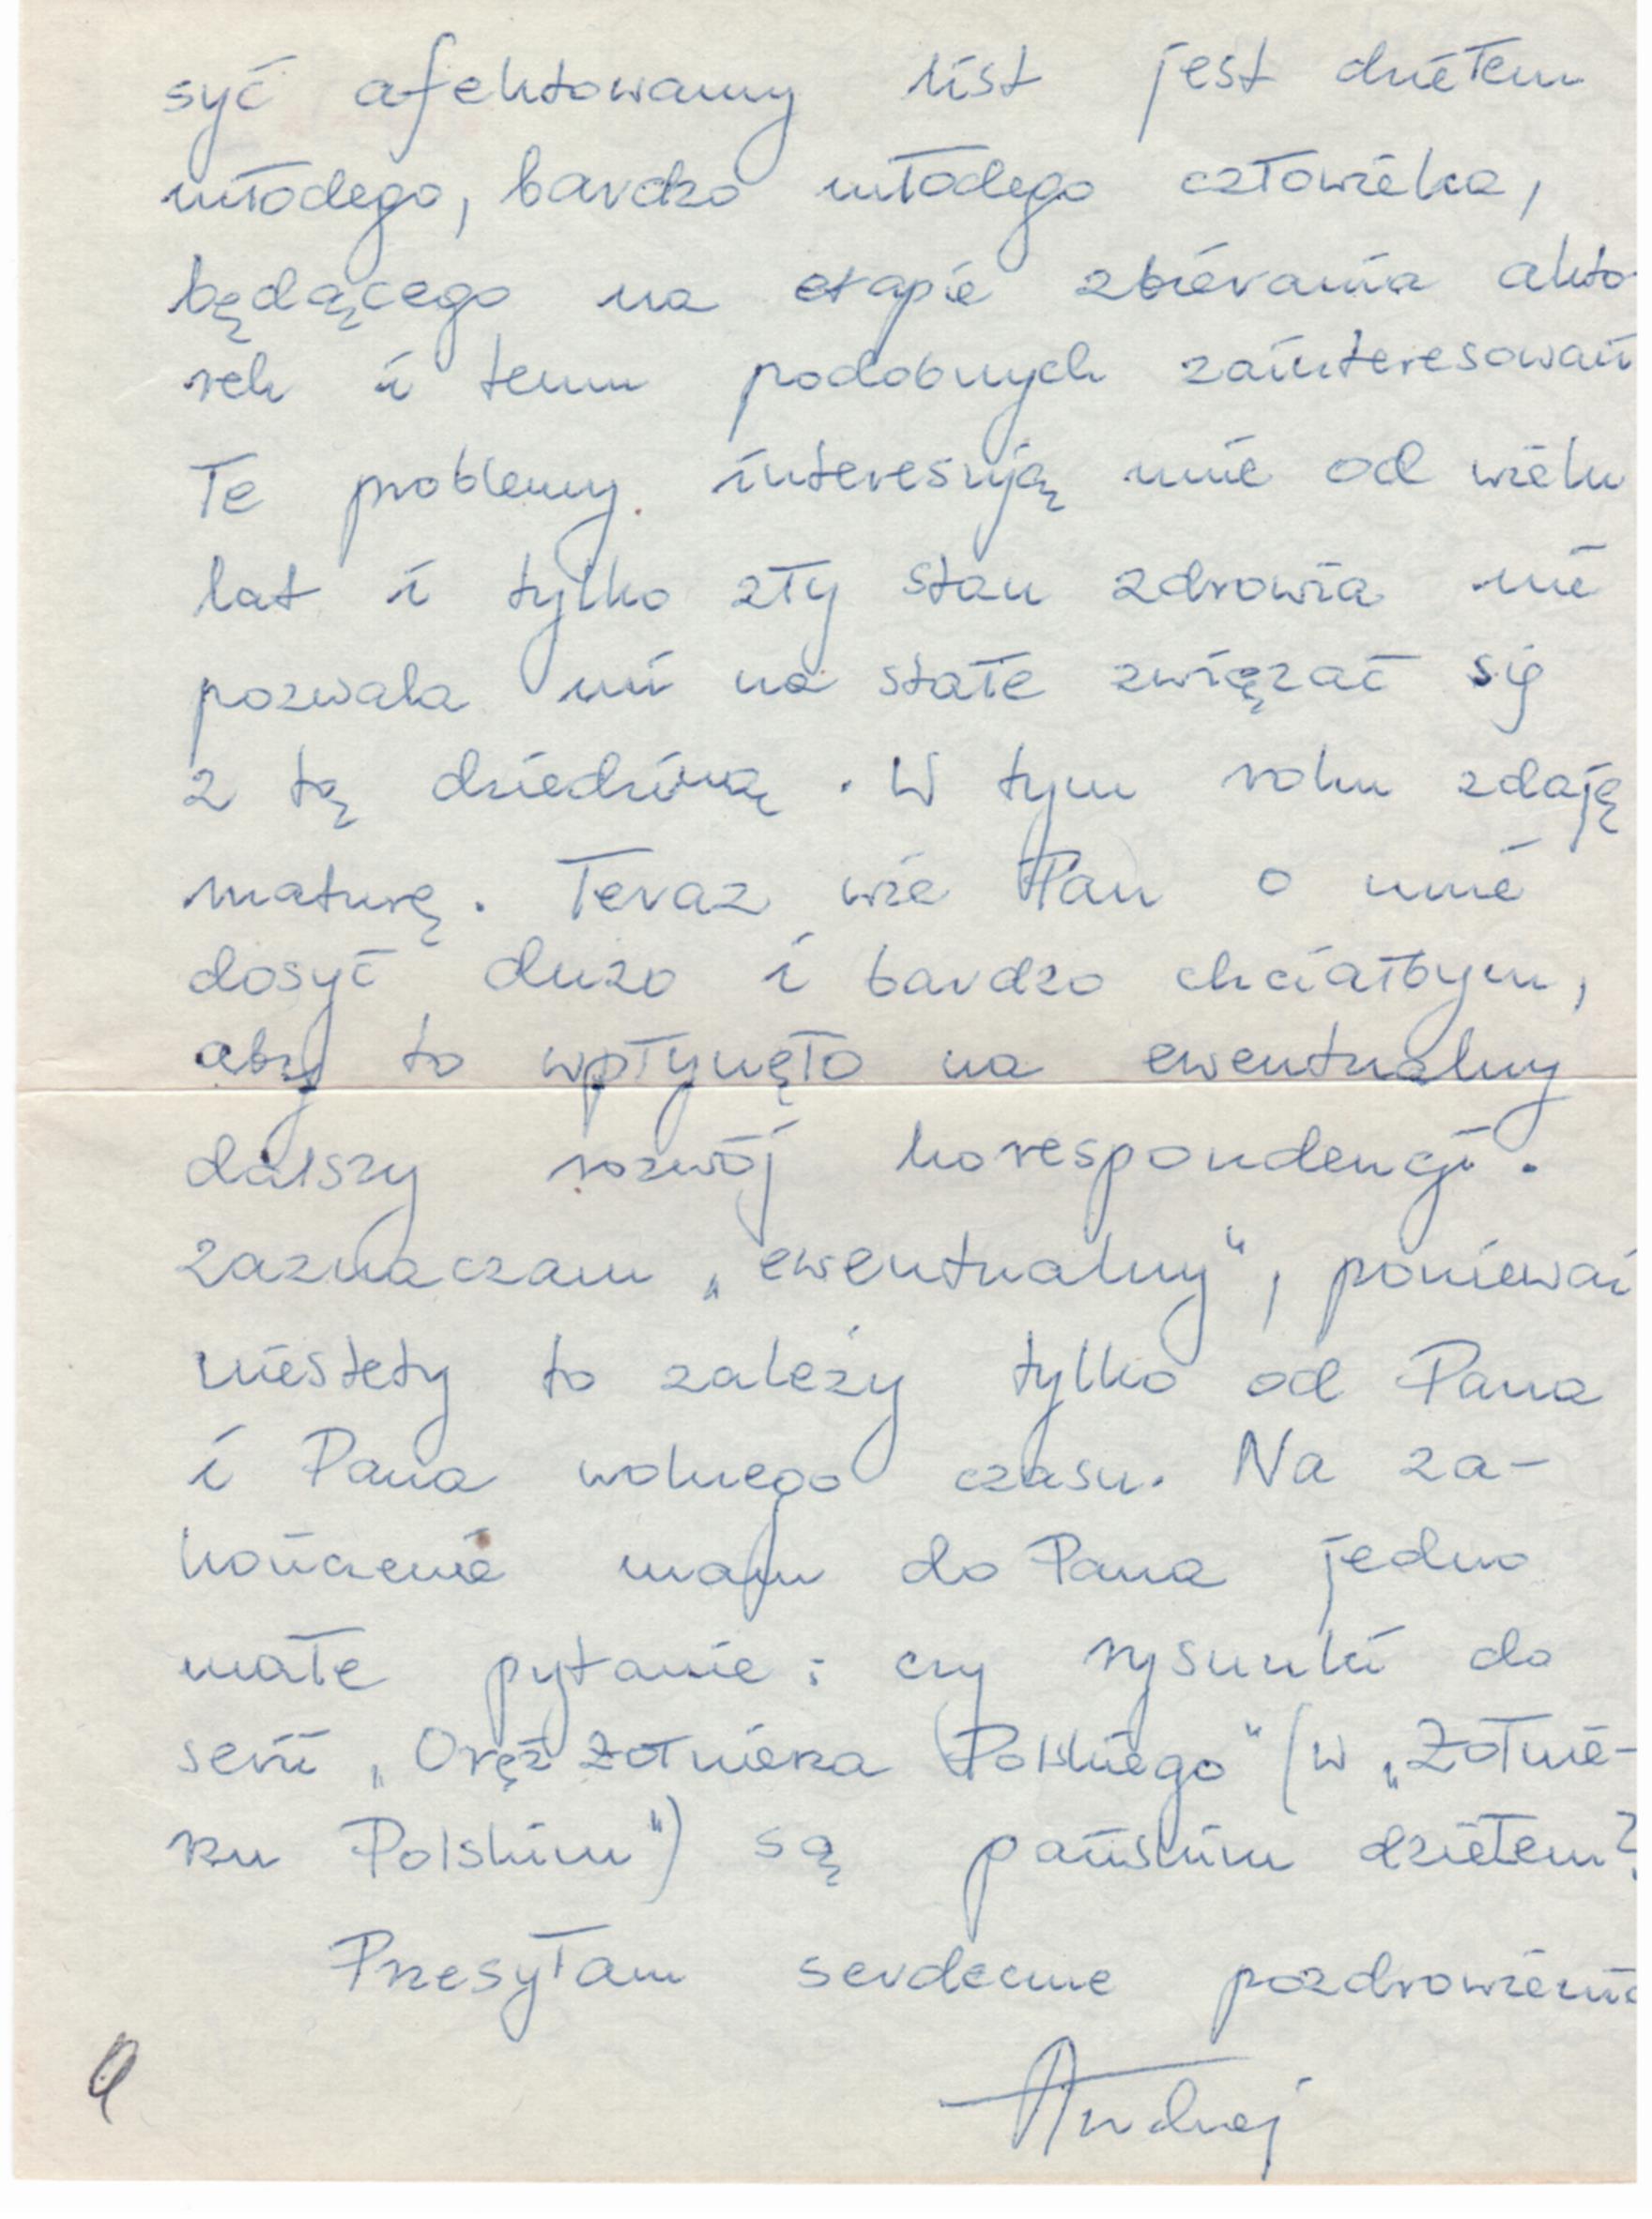 syć afektowany list jest dziełem
młodego, bardzo młodego człowieka,
będącego na etapie zbierania akto-
rek i temu podobnych zainteresowań
Te problemy interesują mnie od wielu
lat i tylko zły stan zdrowia nie
pozwala mi na stałe związać się
z tą dziedziną. W tym roku zdaję
maturę. Teraz wie Pan o mnie
dosyć dużo i bardzo chciałbym,
aby to wpłynęło na ewentualny
dalszy rozwój korespondencji.
Zaznaczam „ewentualny“, ponieważ
niestety to zależy tylko od Pana
i Pana wolnego czasu. Na za-
kończenie mam do Pana jedno
małe pytanie: czy rysunki do
serii „Oręż Żołnierza Polskiego“ (w „Żołnie-
rzu Polskim“) są pańskim dziełem?
Przesyłam serdeczne pozdrowienia
Andrzej